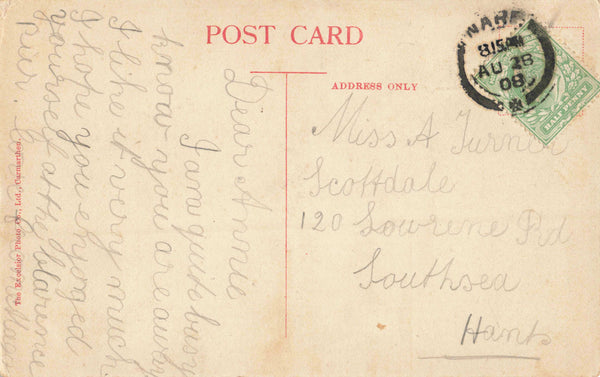 POST CARD
ADDRESS ONLY
NARB
815AM
AU 28
08
HALF PENNY
Miss A Turner
Scottdale
120 Lowrene Rd
Southsea
Hants
Dear Annie
I am quite busy
know you are away
I like it very much.
I hope you enjoyed
yourself at the Clarence
Pier.
The Excelsior Photo Co., Ltd., Carmarthen.